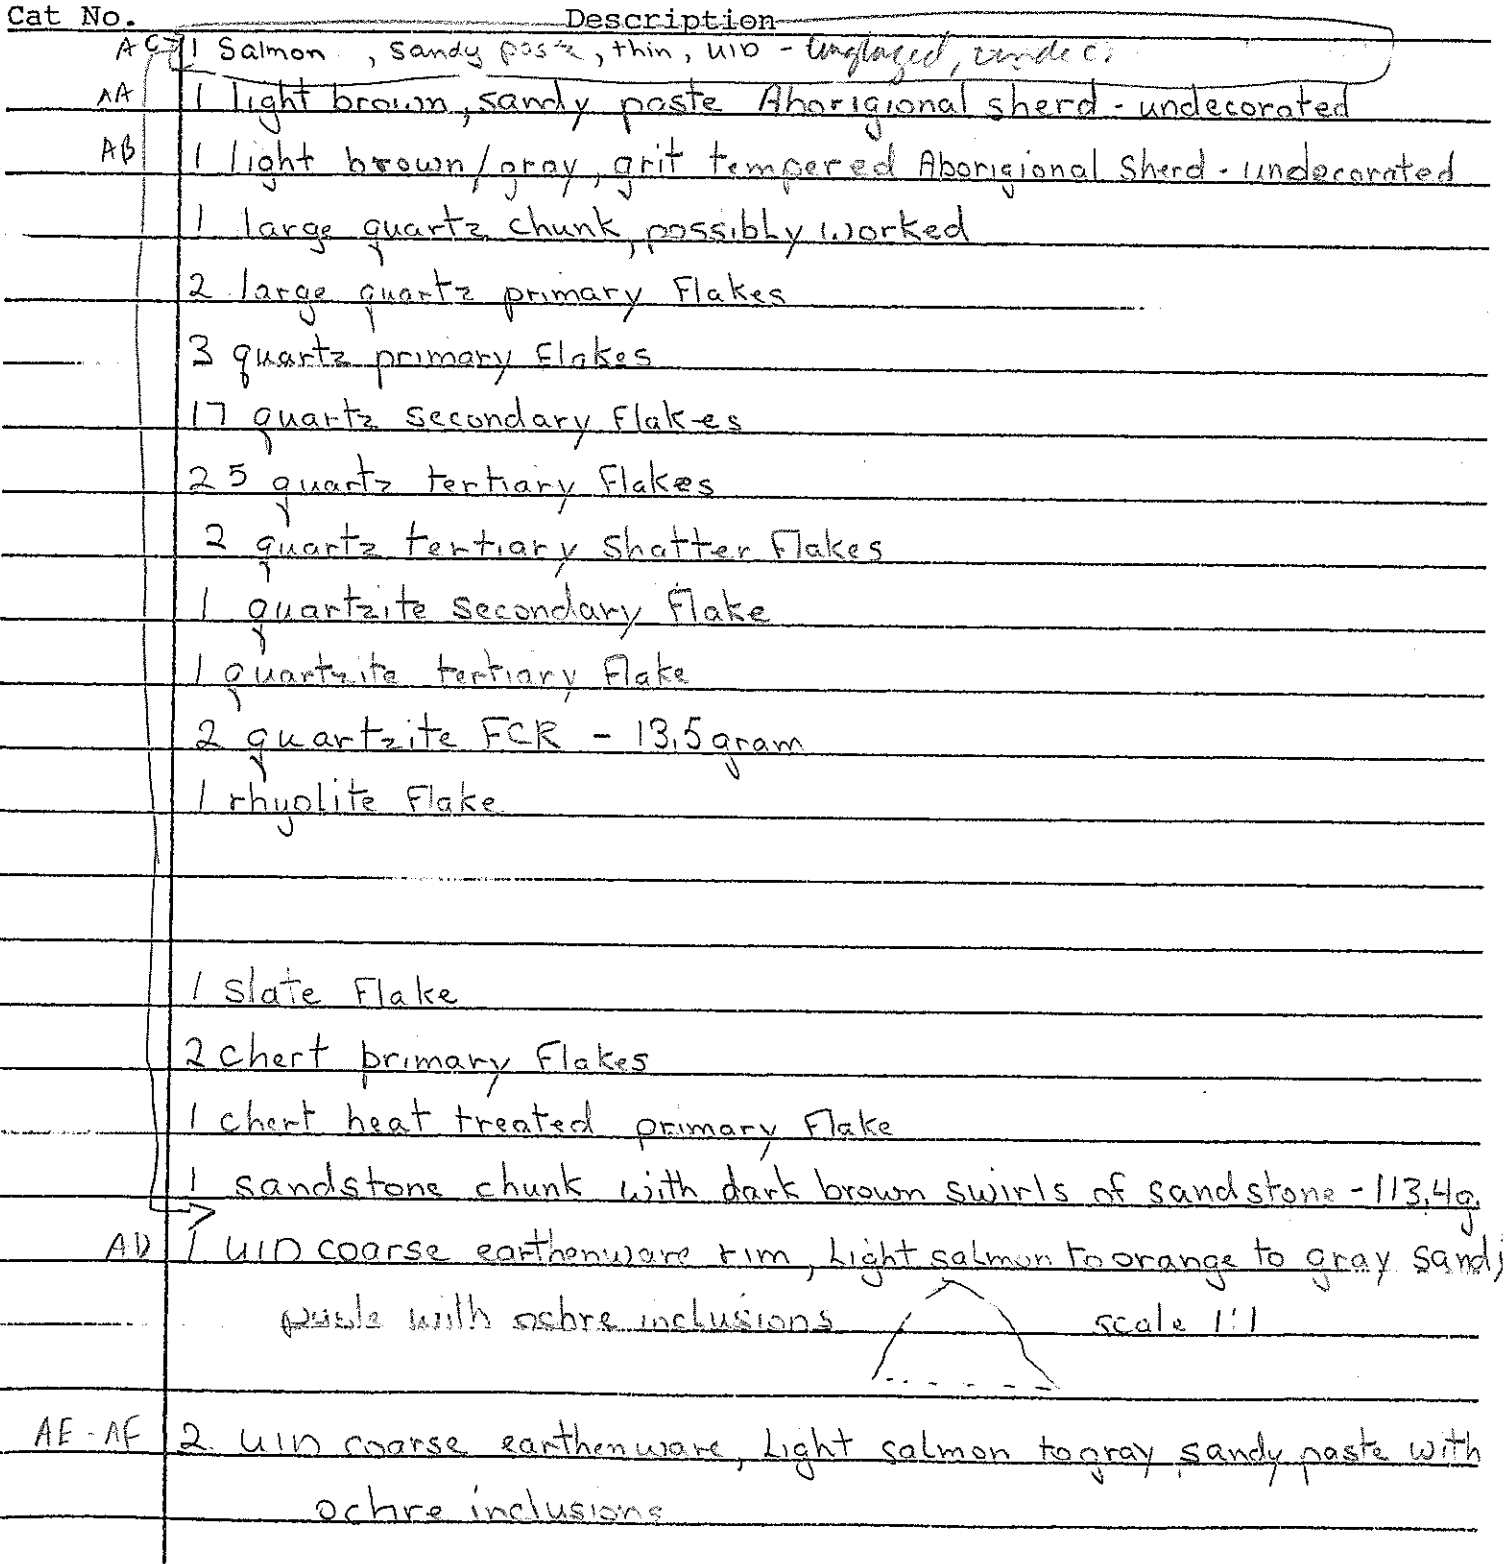 Cat No. Description
AC 1 Salmon , sandy paste, thin, UID - unglazed, undec.
AA 1 light brown, sandy paste Aborigional sherd - undecorated
AB 1 light brown/gray, grit tempered Aborigional Sherd - undecorated
1 large quartz chunk, possibly worked
2 large quartz primary Flakes
3 quartz primary Flakes
17 quartz secondary Flakes
25 quartz tertiary Flakes
2 quartz tertiary shatter Flakes
1 quartzite secondary Flake
1 quartzite tertiary Flake
2 quartzite FCR - 13.5 gram
1 rhyolite Flake
1 Slate Flake
2 chert primary Flakes
1 chert heat treated primary Flake
1 sandstone chunk with dark brown swirls of sandstone - 113.4g.
AD 1 UID coarse earthenware rim, Light salmon to orange to gray sandy
paste with ochre inclusions scale 1:1
AE - AF 2 UID coarse earthenware, Light salmon to gray sandy paste with
ochre inclusions